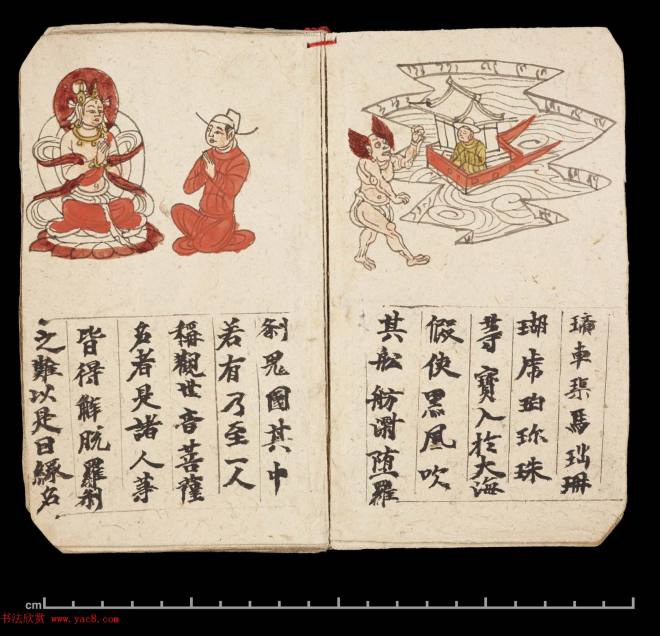 璃車渠馬瑙珊
瑚虎珀珎珠
等寶入於大海
假使黑風吹
其舩舫漂墮羅
刹鬼國其中
若有乃至一人
稱觀世音菩薩
名者是諸人等
皆得解脫羅刹
之難以是因緣名
cm
书法欣赏 www.yac8.com